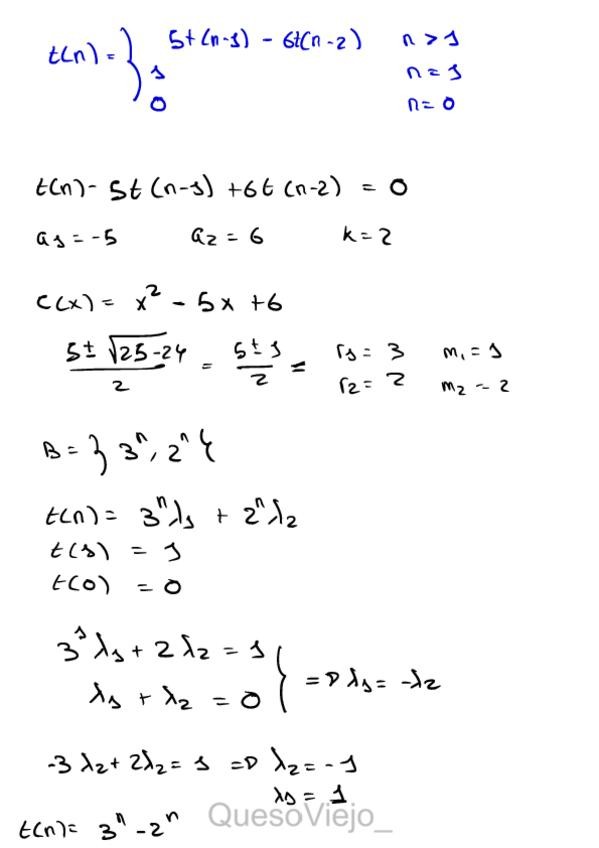 t(n) = { 5t(n-1) - 6t(n-2) n > 1
1 n = 1
0 n = 0
t(n) - 5t(n-1) + 6t(n-2) = 0
a1 = -5 a2 = 6 k = 2
C(x) = x² - 5x + 6
5 ± √25-24 / 2 = 5 ± 1 / 2 = r1 = 3 m1 = 1
r2 = 2 m2 = 2
B = { 3ⁿ, 2ⁿ }
t(n) = 3ⁿλ1 + 2ⁿλ2
t(1) = 1
t(0) = 0
3¹λ1 + 2λ2 = 1
λ1 + λ2 = 0 } => λ1 = -λ2
-3λ2 + 2λ2 = 1 => λ2 = -1
λ1 = 1
t(n) = 3ⁿ - 2ⁿ
QuesoViejo_